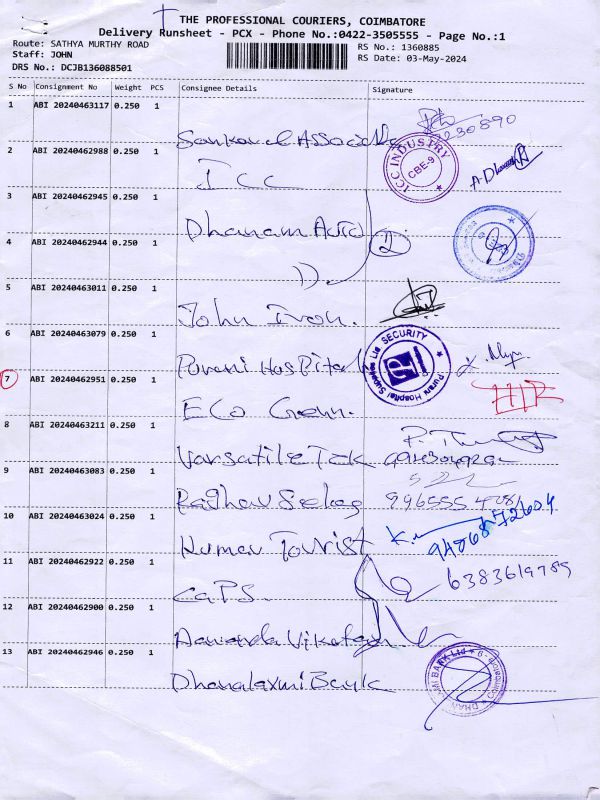 THE PROFESSIONAL COURIERS, COIMBATORE
Delivery Runsheet - PCX - Phone No.:0422-3505555 - Page No.:1
Route: SATHYA MURTHY ROAD
RS No.: 1360885
Staff: JOHN
RS Date: 03-May-2024
DRS No.: DCJB136088501
S No Consignment No Weight PCS Consignee Details Signature
1 ABI 20240463117 0.250 1
2 ABI 20240462988 0.250 1 ICC
ICC INDUSTRY CBE-9
3 ABI 20240462945 0.250 1 Dhanam Auto
4 ABI 20240462944 0.250 1 2
5 ABI 20240463011 0.250 1 John Iron.
6 ABI 20240463079 0.250 1 Purani Hospital
Purani Hospital Supplies Ltd SECURITY
7 ABI 20240462951 0.250 1 Eco Green.
8 ABI 20240463211 0.250 1 Varsatile Tek
9 ABI 20240463083 0.250 1
10 ABI 20240463024 0.250 1 Kumar Tourist K. 94868 72604
11 ABI 20240462922 0.250 1 CaPS. 6383619785
12 ABI 20240462900 0.250 1 Aananda Vikatan
13 ABI 20240462946 0.250 1 Dhanalaxmi Bank